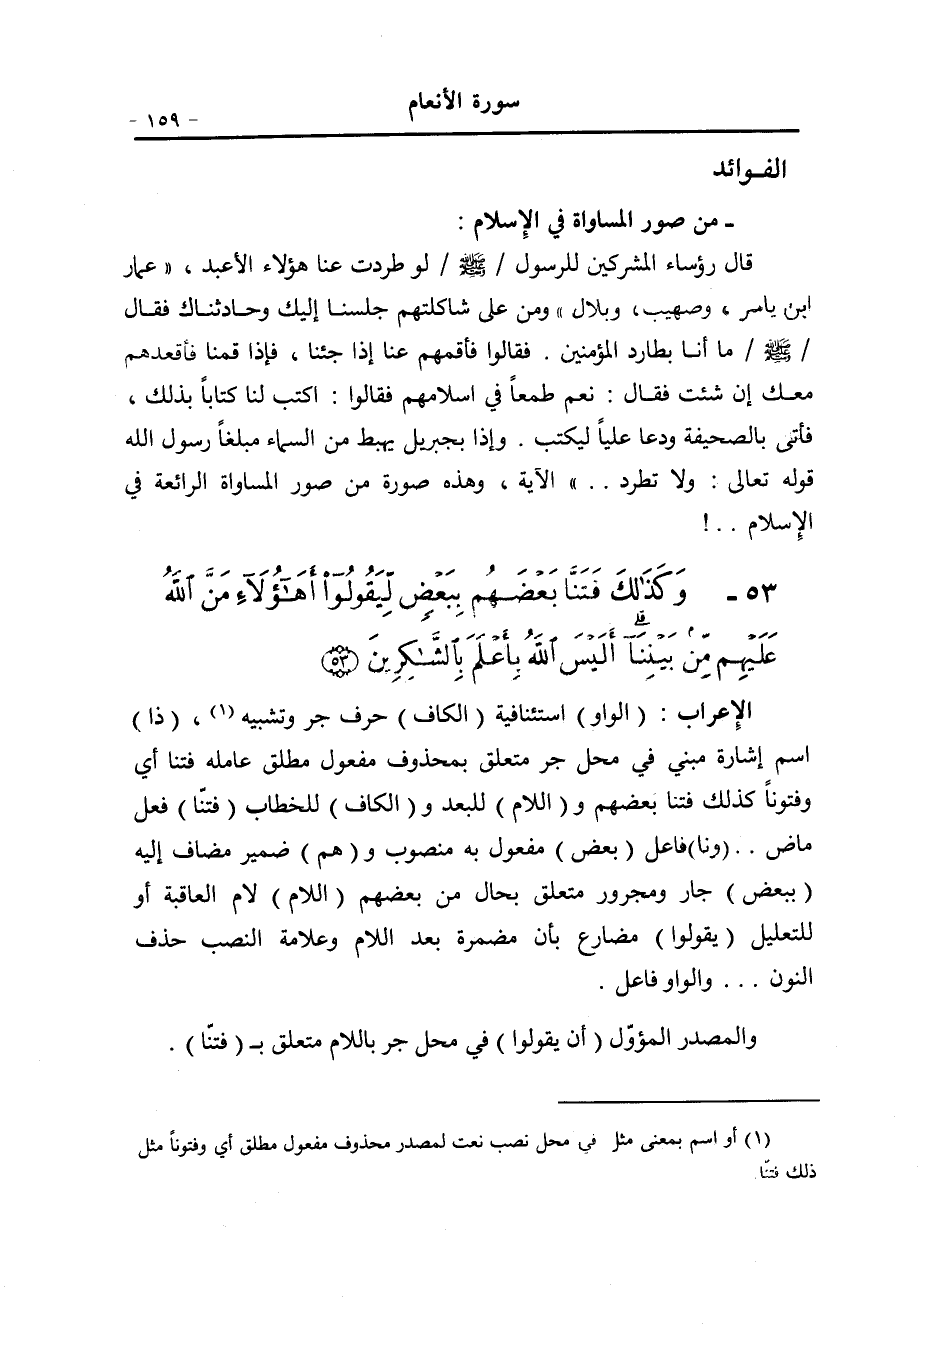 سورة الأنعام
- ١٥٩ -
الفـوائد
ـ من صور المساواة في الإسلام :
قال رؤساء المشركين للرسول / ﷺ / لو طردت عنا هؤلاء الأعبد ، « عمار
ابن ياسر ، وصهيب، وبلال » ومن على شاكلتهم جلسنـا إليك وحـادثنـاك فقـال
/ ﷺ / ما أنـا بطارد المؤمنين . فقالوا فأقمهم عنا إذا جئنا ، فإذا قمنا فأقعدهم
معـك إن شئت فقـال : نعم طمعاً في اسلامهم فقالوا : اكتب لنا كتاباً بذلك ،
فأتى بالصحيفة ودعا علياً ليكتب . وإذا بجبريل يهبط من السماء مبلغاً رسول الله
قوله تعالى : ولا تطرد . . » الآية ، وهذه صورة من صور المساواة الرائعة في
الإسلام . . !
٥٣ ـ وَكَذَٰلِكَ فَتَنَّا بَعْضَهُم بِبَعْضٍ لِّيَقُولُوٓا۟ أَهَـٰٓؤُلَآءِ مَنَّ ٱللَّهُ
عَلَيْهِم مِّنۢ بَيْنِنَآ ۗ أَلَيْسَ ٱللَّهُ بِأَعْلَمَ بِٱلشَّـٰكِرِينَ ﴿٥٣﴾
الإعراب : ( الواو ) استئنافية ( الكاف ) حرف جر وتشبيه (١) ، ( ذا )
اسم إشارة مبني في محل جر متعلق بمحذوف مفعول مطلق عامله فتنا أي
وفتوناً كذلك فتنا بعضهم و ( اللام ) للبعد و ( الكاف ) للخطاب ( فتنّا ) فعل
ماض . . (ونا)فاعل ( بعض ) مفعول به منصوب و ( هم ) ضمير مضاف إليه
( ببعض ) جار ومجرور متعلق بحال من بعضهم ( اللام ) لام العاقبة أو
للتعليل ( يقولوا ) مضارع بأن مضمرة بعد اللام وعلامة النصب حذف
النون . . . والواو فاعل .
والمصدر المؤوّل ( أن يقولوا ) في محل جر باللام متعلق بـ ( فتنّا ) .
(١) أو اسم بمعنى مثل في محل نصب نعت لمصدر محذوف مفعول مطلق أي وفتوناً مثل
ذلك فتنّا